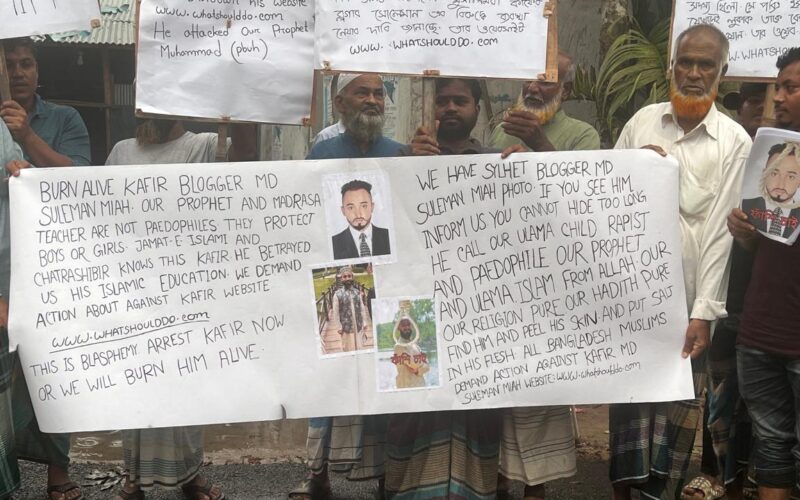 HIS WEBSITE
WWW.WHATSHOULDDO.COM
He attacked Our Prophet
Muhammad (pbuh)
নেয়ার দাবি জানাচ্ছে। তার ওয়েবসাইট
WWW.WHATSHOULDDO.COM
WWW.WHATSHOULDDO
BURN ALIVE KAFIR BLOGGER MD
SULEMAN MIAH. OUR PROPHET AND MADRASA
TEACHER ARE NOT PAEDOPHILES THEY PROTECT
BOYS OR GIRLS. JAMAT-E ISLAMI AND
CHATRASHIBIR KNOWS THIS KAFIR HE BETRAYED
US HIS ISLAMIC EDUCATION. WE DEMAND
ACTION ABOUT AGAINST KAFIR WEBSITE
WWW.WHATSHOULDDO.COM
THIS IS BLASPHEMY ARREST KAFIR NOW
OR WE WILL BURN HIM ALIVE.
ফাঁসি চাই
WE HAVE SYLHET BLOGGER MD
SULEMAN MIAH PHOTO. IF YOU SEE HIM
INFORM US YOU CANNOT HIDE TOO LONG
HE CALL OUR ULAMA CHILD RAPIST
AND PAEDOPHILE OUR PROPHET
AND ULAMA ISLAM FROM ALLAH OUR
OUR RELIGION PURE OUR HADITH PURE
FIND HIM AND PEEL HIS SKIN AND PUT SALT
IN HIS FLESH. ALL BANGLADESH MUSLIMS
DEMAND ACTION AGAINST KAFIR MD
SULEMAN MIAH WEBSITE: WWW.WHATSHOULDDO.COM
ফাঁসি চাই